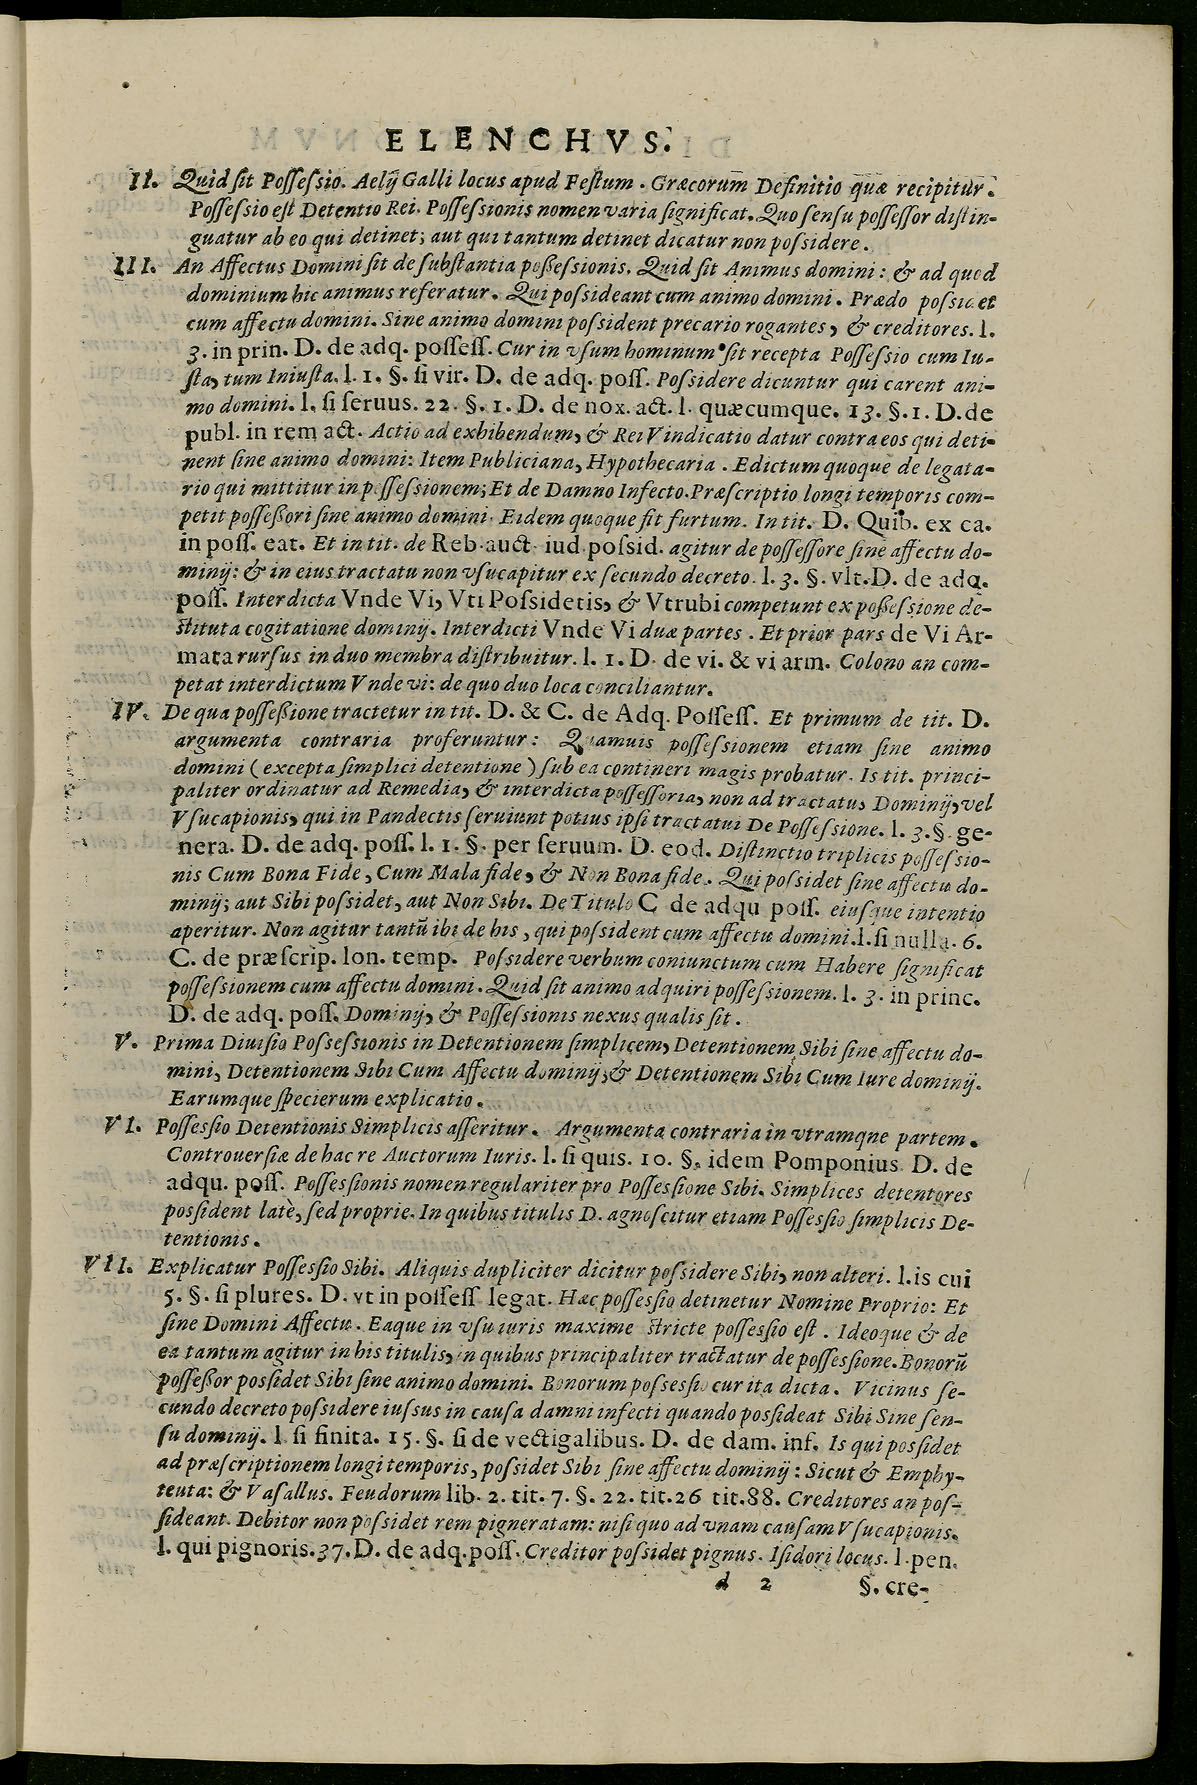 ELENCHVS.
II. Quid sit Possessio. Aelij Galli locus apud Festum. Græcorum Definitio quæ recipitur.
Possessio est Detentio Rei. Possessionis nomen varia significat. Quo sensu possessor distin-
guatur ab eo qui detinet; aut qui tantum detinet dicatur non possidere.
III. An Affectus Domini sit de substantia possessionis. Quid sit Animus domini: & ad quod
dominium hic animus referatur. Qui possideant cum animo domini. Prædo possidet
cum affectu domini. Sine animo domini possident precario rogantes, & creditores. l.
3. in prin. D. de adq. possess. Cur in vsum hominum sit recepta Possessio cum Iu-
sta, tum Iniusta. l. 1. §. si vir. D. de adq. poss. Possidere dicuntur qui carent ani-
mo domini. l. si seruus. 22. §. 1. D. de nox. act. l. quæcumque. 13. §. 1. D. de
publ. in rem act. Actio ad exhibendum, & Rei Vindicatio datur contra eos qui deti-
nent sine animo domini: Item Publiciana, Hypothecaria. Edictum quoque de legata-
rio qui mittitur in possessionem; Et de Damno Infecto. Præscriptio longi temporis com-
petit possessori sine animo domini. Eidem quoque fit furtum. In tit. D. Quib. ex ca.
in poss. eat. Et in tit. de Reb. auct. iud. possid. agitur de possessore sine affectu do-
minij: & in eius tractatu non vsucapitur ex secundo decreto. l. 3. §. vlt. D. de adq.
poss. Interdicta Vnde Vi, Vti Possidetis, & Vtrubi competunt ex possessione de-
stituta cogitatione dominij. Interdicti Vnde Vi duæ partes. Et prior pars de Vi Ar-
mata rursus in duo membra distribuitur. l. 1. D. de vi. & vi arm. Colono an com-
petat interdictum Vnde vi: de quo duo loca conciliantur.
IV. De qua possessione tractetur in tit. D. & C. de Adq. Possess. Et primum de tit. D.
argumenta contraria proferuntur: Quamuis possessionem etiam sine animo
domini (excepta simplici detentione) sub ea contineri magis probatur. Is tit. princi-
paliter ordinatur ad Remedia, & interdicta possessoria, non ad tractatus Dominij, vel
Vsucapionis, qui in Pandectis seruiunt potius ipsi tractatui De Possessione. l. 3. §. ge-
nera. D. de adq. poss. l. 1. §. per seruum. D. eod. Distinctio triplicis possessio-
nis Cum Bona Fide, Cum Mala fide, & Non Bona fide. Qui possidet sine affectu do-
minij; aut Sibi possidet, aut Non Sibi. De Titulo C de adqu poss. eiusque intentio
aperitur. Non agitur tantū ibi de his, qui possident cum affectu domini. l. si nulla. 6.
C. de præscrip. lon. temp. Possidere verbum coniunctum cum Habere significat
possessionem cum affectu domini. Quid sit animo adquiri possessionem. l. 3. in princ.
D. de adq. poss. Dominij, & Possessionis nexus qualis sit.
V. Prima Diuisio Possessionis in Detentionem simplicem, Detentionem Sibi sine affectu do-
mini, Detentionem Sibi Cum Affectu dominij; & Detentionem Sibi Cum Iure dominij.
Earumque specierum explicatio.
VI. Possessio Detentionis Simplicis asseritur. Argumenta contraria in vtramqne partem.
Controuersiæ de hac re Auctorum Iuris. l. si quis. 10. §. idem Pomponius D. de
adqu. poss. Possessionis nomen regulariter pro Possessione Sibi. Simplices detentores
possident latè, sed proprie. In quibus titulis D. agnoscitur etiam Possessio simplicis De-
tentionis.
VII. Explicatur Possessio Sibi. Aliquis dupliciter dicitur possidere Sibi, non alteri. l. is cui
5. §. si plures. D. vt in possess legat. Hæc possessio detinetur Nomine Proprio: Et
sine Domini Affectu. Eaque in vsu iuris maxime stricte possessio est. Ideoque & de
ea tantum agitur in his titulis, in quibus principaliter tractatur de possessione. Bonorū
possessor possidet Sibi sine animo domini. Bonorum possessio cur ita dicta. Vicinus se-
cundo decreto possidere iussus in causa damni infecti quando possideat Sibi Sine sen-
su dominij. l. si finita. 15. §. si de vectigalibus. D. de dam. inf. Is qui possidet
ad præscriptionem longi temporis, possidet Sibi sine affectu dominij: Sicut & Emphy-
teuta: & Vasallus. Feudorum lib. 2. tit. 7. §. 22. tit. 26 tit. 88. Creditores an pos-
sideant. Debitor non possidet rem pigneratam: nisi quo ad vnam causam Vsucapionis.
l. qui pignoris. 37. D. de adq. poss. Creditor possidet pignus. Isidori locus. l. pen.
d 2 §. cre-